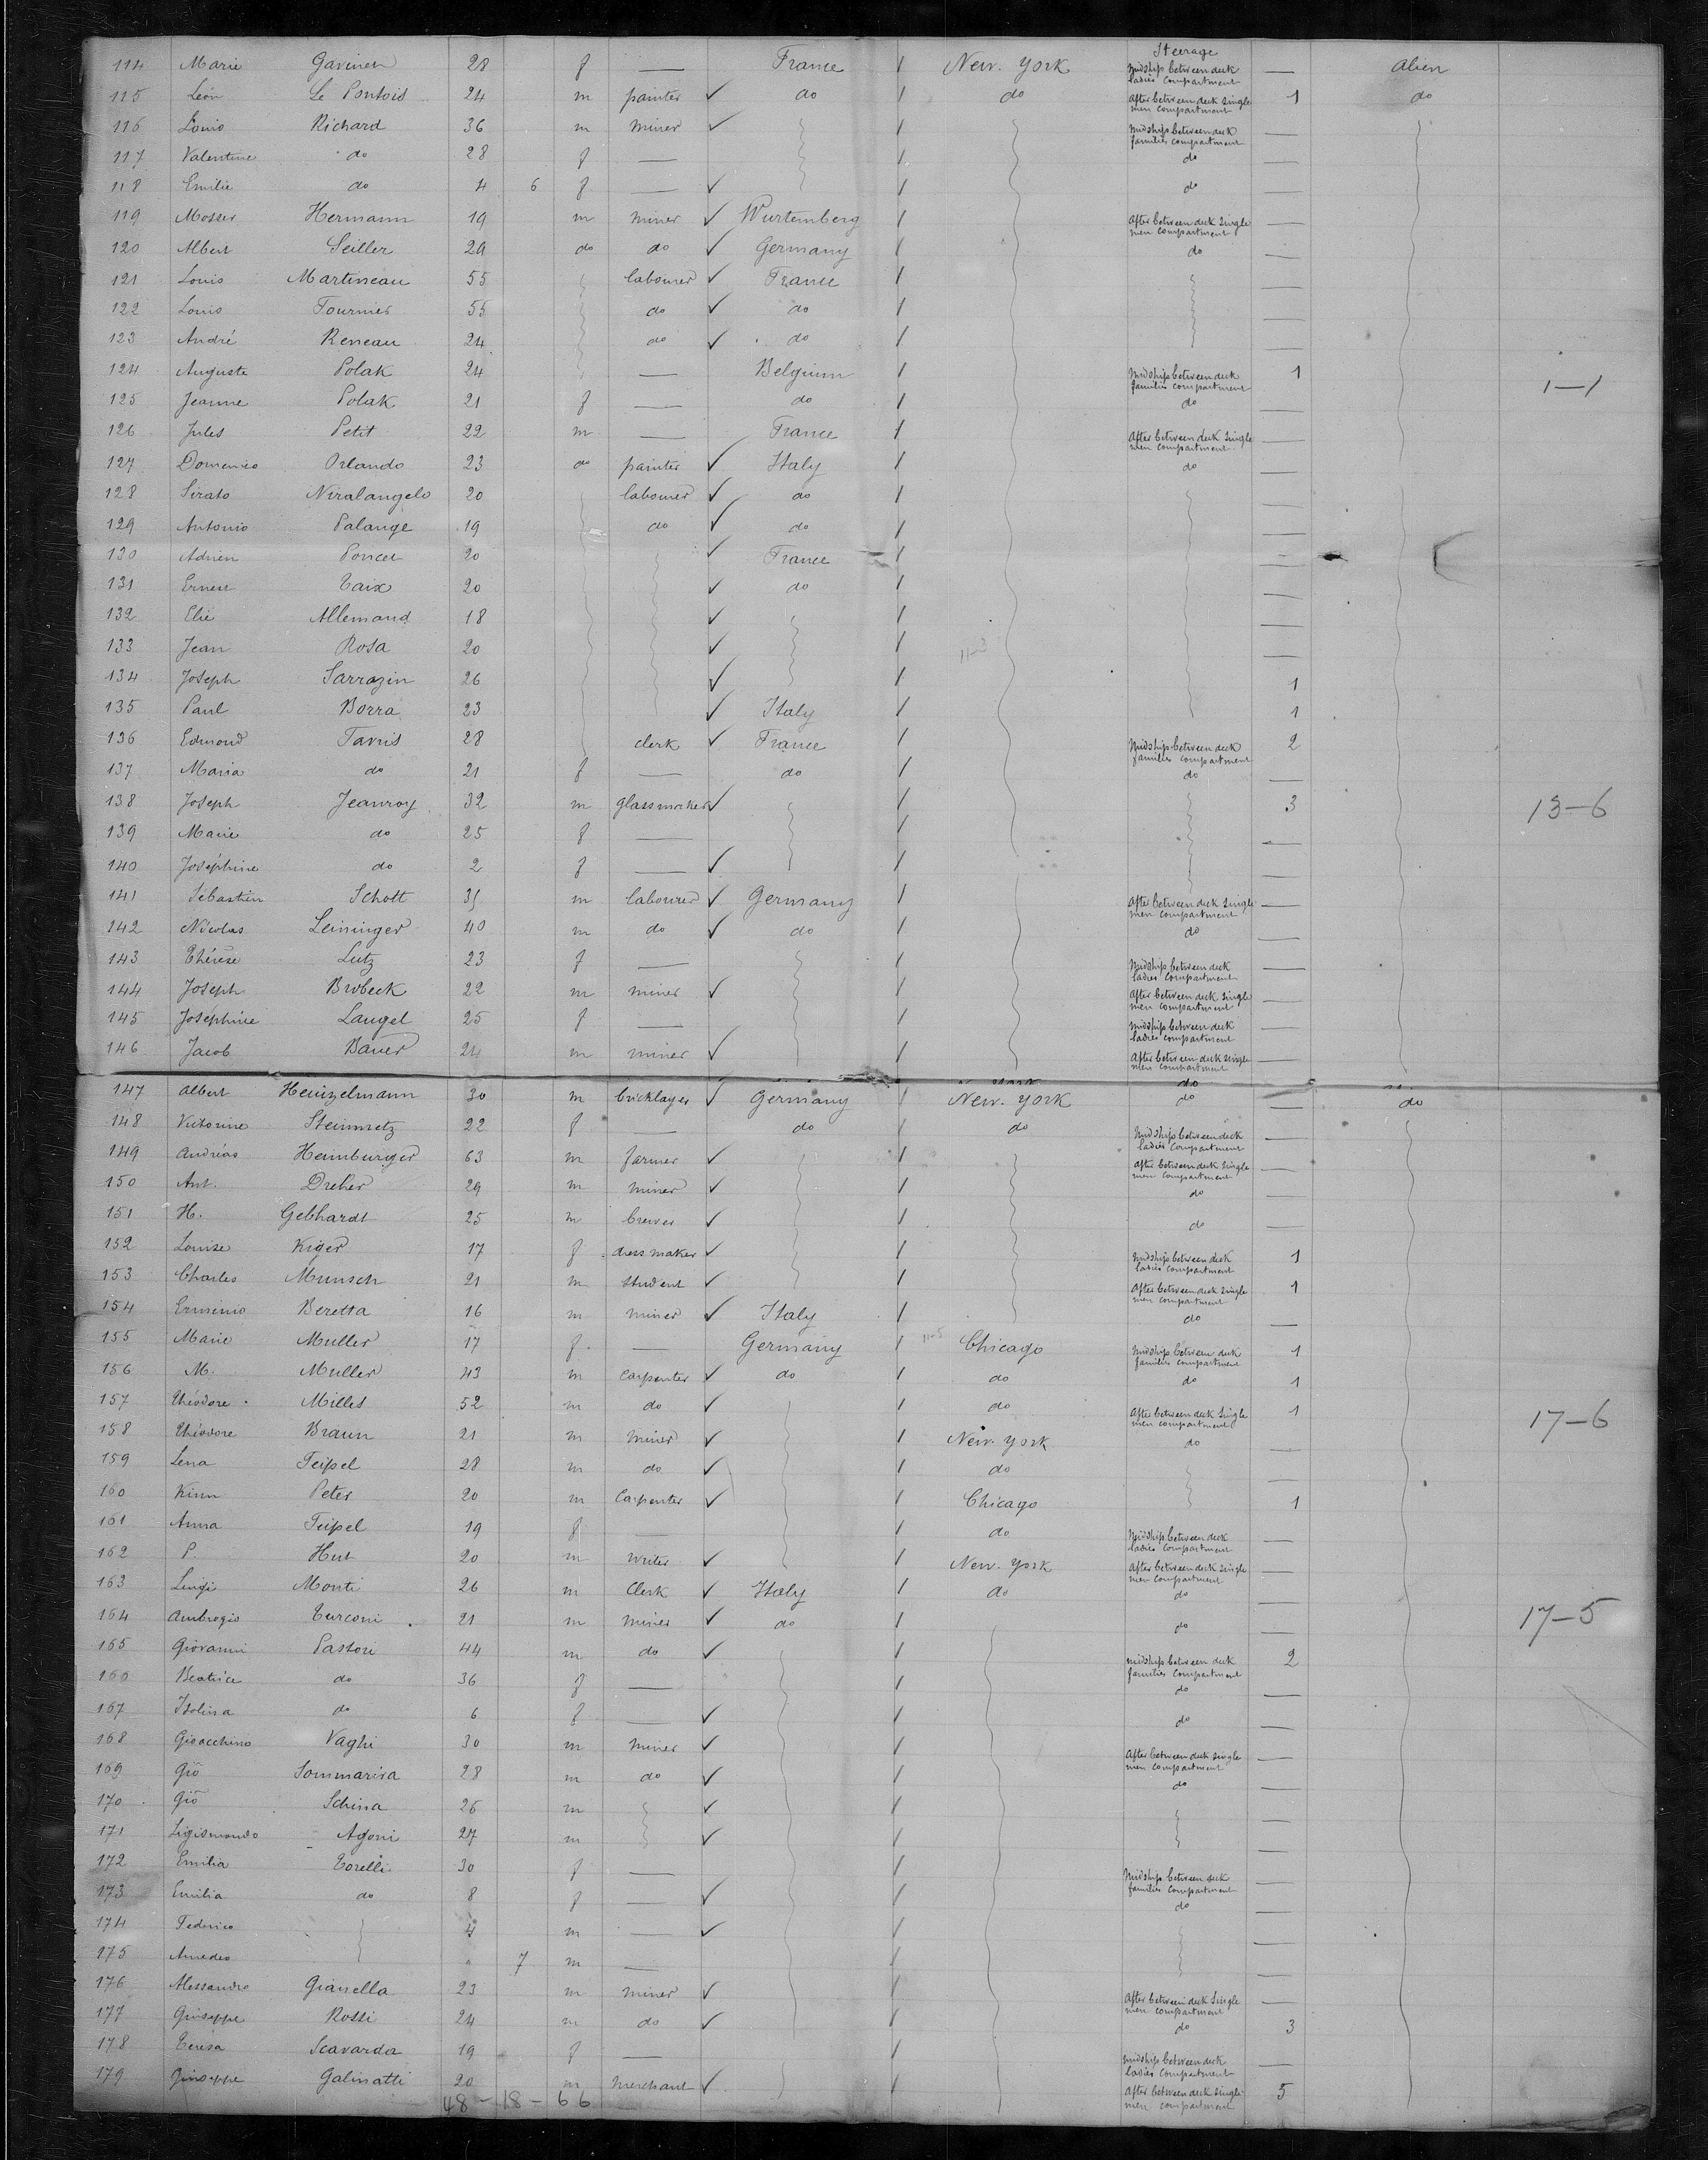 Steerage
114 Marie Gavinet 28 f — France 1 New. York Midship between deck ladies compartment — alien
115 Léon Le Pontois 24 m painter ✓ do 1 do After between deck single men compartment 1 do
116 Louis Richard 36 m miner ✓ 1 Midship between deck families compartment —
117 Valentine do 28 f — 1 do —
118 Emilie do 4 6 f — ✓ 1 do
119 Mosser Hermann 19 m miner ✓ Wurtemberg 1 After between deck single men compartment —
120 Albert Seiller 29 do do ✓ Germany 1 do —
121 Louis Martineau 55 labourer ✓ France 1 —
122 Louis Fournier 55 do ✓ do 1 —
123 André Reneau 24 do ✓ do 1 —
124 Auguste Polak 24 — Belgium 1 Midship between deck families compartment 1 1—1
125 Jeanne Polak 21 f — do 1 do —
126 Jules Petit 22 m — France 1 After between deck single men compartment —
127 Domenico Orlando 23 do painter ✓ Italy 1 do —
128 Sirato Niralangelo 20 labourer ✓ do 1 —
129 Antonio Palange 19 do ✓ do 1 —
130 Adrien Poncet 20 ✓ France 1 —
131 Ernest Taix 20 ✓ do 1 —
132 Elie Allemand 18 ✓ 1 —
133 Jean Rosa 20 ✓ 1 11—3 —
134 Joseph Sarrazin 26 ✓ 1 1
135 Paul Borra 23 ✓ Italy 1 1
136 Edmond Tarris 28 clerk ✓ France 1 Midship between deck families compartment 2
137 Maria do 21 f — do 1 do —
138 Joseph Jeanroy 32 m glassmaker ✓ 1 3 13—6
139 Marie do 25 f — 1 —
140 Joséphine do 2 f — ✓ 1 —
141 Sébastien Schott 35 m labourer ✓ Germany 1 After between deck single men compartment —
142 Nicolas Leininger 40 m do ✓ do 1 do —
143 Thérèse Lutz 23 f — 1 Midship between deck ladies compartment —
144 Joseph Brobeck 22 m miner ✓ 1 After between deck single men compartment —
145 Joséphine Laugel 25 f — 1 Midship between deck ladies compartment —
146 Jacob Bauer 24 m miner ✓ 1 After between deck single men compartment —
do
147 Albert Heinzelmann 30 m bricklayer ✓ Germany 1 New. York do — do
148 Victorine Steinmetz 22 f — do 1 do Midship between deck ladies compartment —
149 Andréas Heimburger 63 m farmer ✓ 1 After between deck single men compartment —
150 Ant. Dreher 29 m miner ✓ 1 do —
151 H. Gebhardt 25 m brewer ✓ 1 do —
152 Louise Kiger 17 f dress maker ✓ 1 Midship between deck ladies compartment 1
153 Charles Munsch 21 m student ✓ 1 After between deck single men compartment 1
154 Erminio Beretta 16 m miner ✓ Italy 1 do —
155 Marie Muller 17 f — Germany 1 11—5 Chicago Midship between deck families compartment 1
156 M. Muller 43 m carpenter ✓ do 1 do do 1
157 Théodore Milles 52 m do ✓ 1 do After between deck single men compartment 1 17—6
158 Théodore Braun 21 m miner ✓ 1 New. York do —
159 Lena Teipel 28 m do ✓ 1 do —
160 Kinn Peter 20 m Carpenter ✓ 1 Chicago 1
161 Anna Teipel 19 f — 1 do Midship between deck ladies compartment —
162 P. Hut 20 m writer ✓ 1 New. York After between deck single men compartment —
163 Luigi Monti 26 m Clerk ✓ Italy 1 do do —
164 Ambrogio Turconi 21 m miner ✓ do 1 do — 17—5
165 Giovanni Pastori 44 m do ✓ 1 midship between deck families compartment 2
166 Beatrice do 36 f — 1 do —
167 Isolina do 6 f — ✓ 1 do —
168 Gioacchino Vaghi 30 m miner ✓ 1 After between deck single men compartment —
169 Gio Sommariva 28 m do ✓ 1 do —
170 Gio Schina 26 m ✓ 1
171 Sigismondo Agoni 27 m ✓ 1 —
172 Emilia Torelli 30 f — 1 Midship between deck families compartment —
173 Emilia do 8 f — ✓ 1 do —
174 Federico 4 m — ✓ 1 —
175 Amedeo " 7 m — 1 —
176 Alessandro Gianella 23 m miner ✓ 1 After between deck single men compartment —
177 Giuseppe Rossi 24 m do ✓ 1 do 3
178 Teresa Scavarda 19 f — 1 midship between deck ladies compartment —
179 Giuseppe Galinatti 20 m merchant ✓ 1 After between deck single men compartment 5
48—18—66